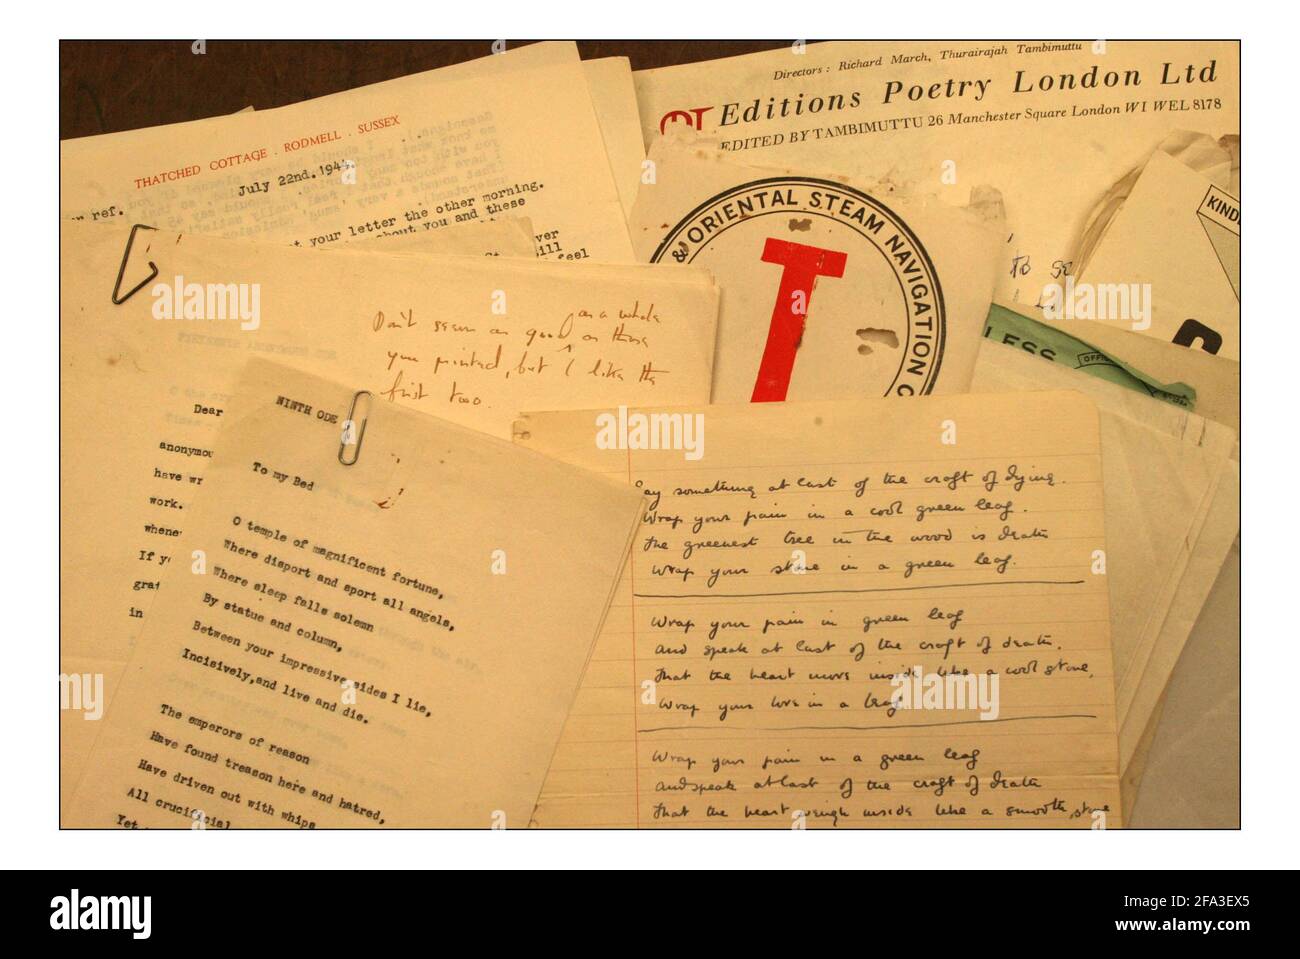 Directors: Richard March, Thurairajah Tambimuttu
Editions Poetry London Ltd
EDITED BY TAMBIMUTTU 26 Manchester Square London W1 WEL 8178
THATCHED COTTAGE . RODMELL . SUSSEX
July 22nd. 1944.
ref.
your letter the other morning.
about you and these
feel
& ORIENTAL STEAM NAVIGATION
KIND
LESS
Don't seem as good as a whole as those
you printed, but I like the
first too.
Dear
anonymou
have wr
work.
whene
If y
grat
in
NINTH ODE
To my Bed
O temple of magnificent fortune,
Where disport and sport all angels,
Where sleep falls solemn
By statue and column,
Between your impressive sides I lie,
Incisively,and live and die.
The emperors of reason
Have found treason here and hatred,
Have driven out with whips
All crucificial
Yet
Say something at last of the craft of dying.
Wrap your pain in a cool green leaf.
The greenest tree in the wood is death
Wrap your stone in a green leaf.
Wrap your pain in green leaf
And speak at last of the craft of death.
That the heart move inside like a cool stone,
Wrap your love in a leaf
Wrap your pain in a green leaf
And speak at last of the craft of death
That the heart weigh inside like a smooth stone
alamy
2FA3EX5
www.alamy.com